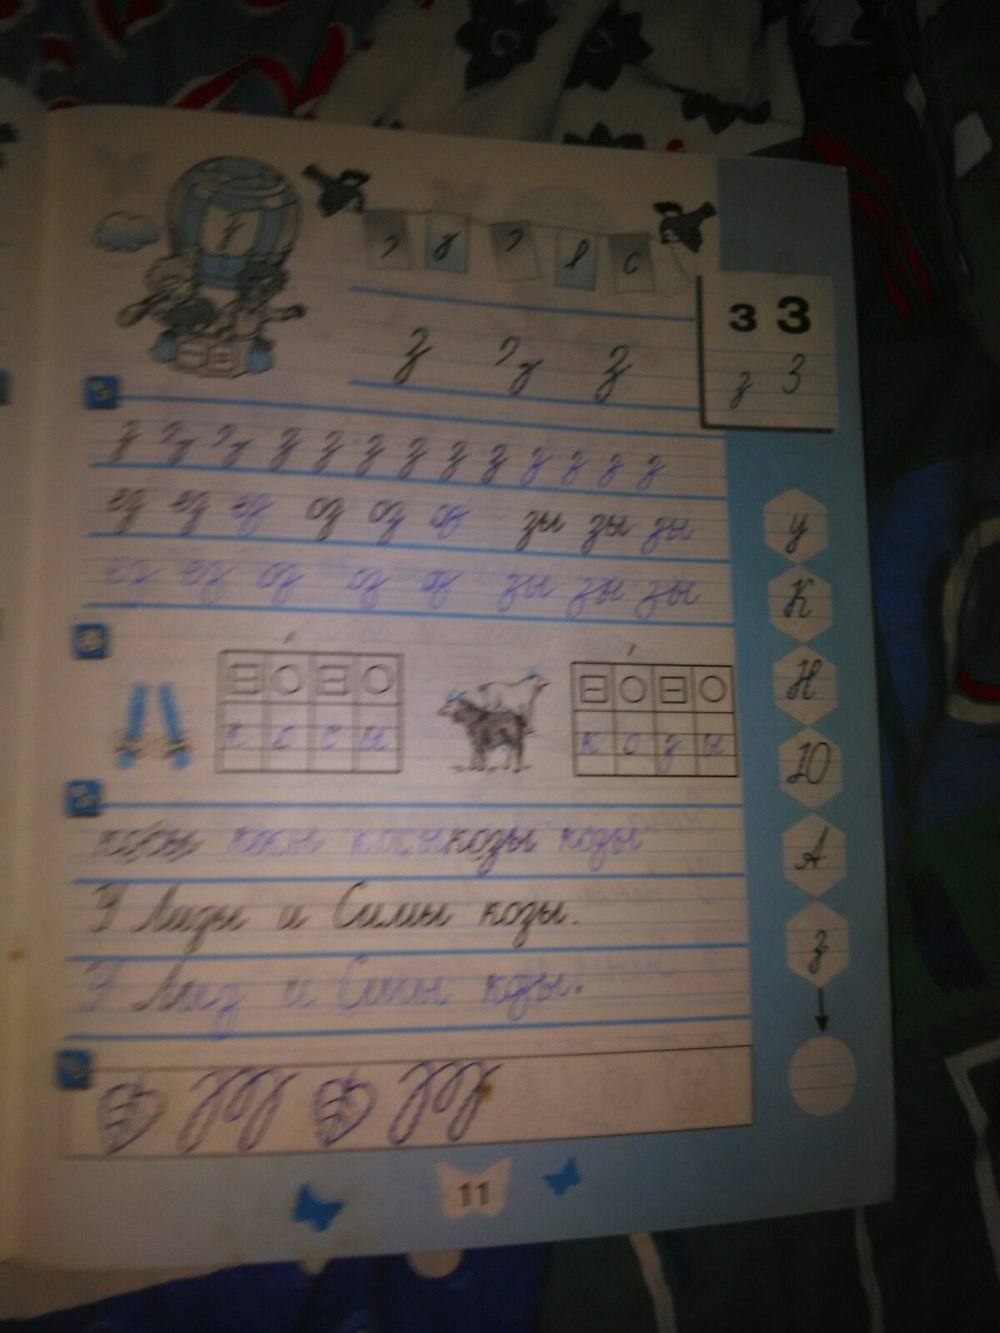 з
з З
з З
з з
з з з з з з з з з з з з з
ез ез ез оз оз оз зы зы зы
ез ез оз оз оз зы зы зы
к о с ы
к о з ы
косы косы козы козы
У Лизы и Симы козы.
У Лиз и Симы козы.
у
К
Н
Ю
А
з
11